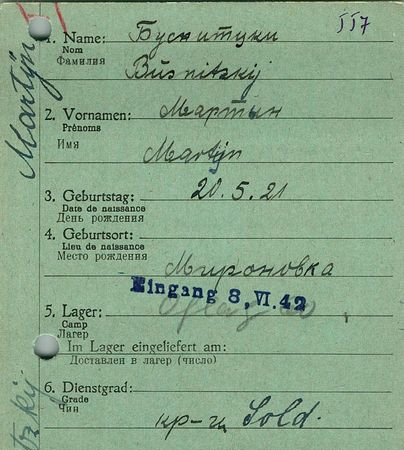 II7
1. Name:
Nom
Фамилия
Busnitzkij
2. Vornamen: Мартин
Prénoms
Имя
Martijn
3. Geburtstag: 20.5.21
Date de naissance
День рождения
4. Geburtsort:
Lieu de naissance
Место рождения
Мироновка
Eingang 8. VI. 42
5. Lager:
Camp
Лагерь
Im Lager eingeliefert am:
Доставлен в лагерь (число)
6. Dienstgrad:
Grade
Чин
кр-ц Sold.
Martijn